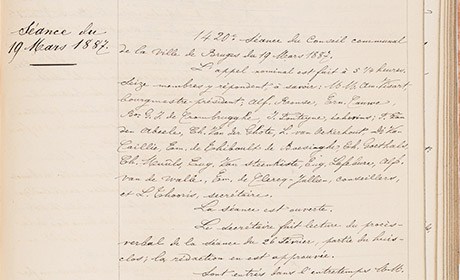 Séance du
19 Mars 1887.
1420e Séance du Conseil communal
de la Ville de Bruges du 19 Mars 1887.
L'appel nominal est fait à 5 1/2 heures.
Seize membres y répondent, à savoir: M.M. Am. Visart
bourgmestre-président, Alf. Ronse, Ern. Cauwe
G. de T. Fontagne, échevins; F. Van
den Abeele, Ch. Van der Ghote, L. van Ockerhout
Caillie, Em. de Schietere de Ch. Goethals,
Ch. Meuls, Van Steenkiste, Eug. Lefebure, Alp.
van de Walle, Em. de Clercq-Jullien, conseillers,
et L. Thooris, secrétaire.
La séance est ouverte.
Le secrétaire fait lecture du procès-
verbal de la séance du 26 février, partie du huis-
clos; la rédaction en est approuvée.
Sont entrés dans l'entretemps M.M.